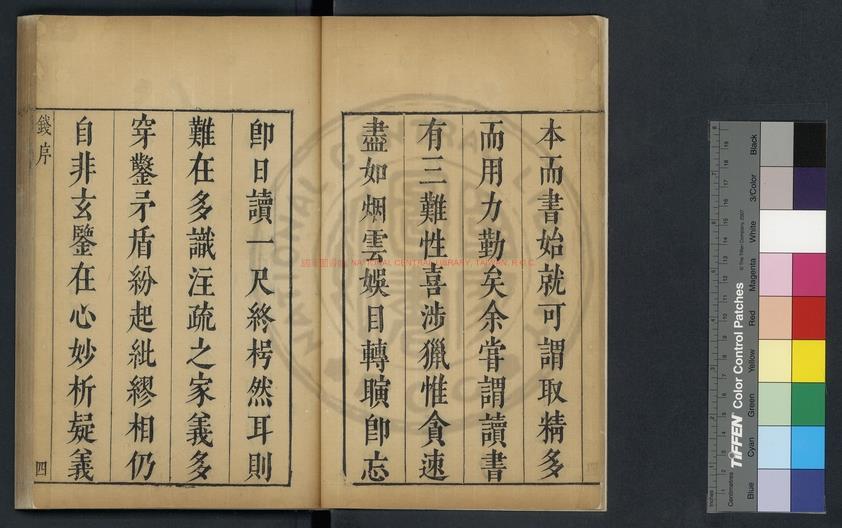 本而書始就可謂取精多
而用力勤矣余甞謂讀書
有三難性喜涉獵惟貪速
盡如烟雲娛目轉瞚卽忘
卽日讀一尺終枵然耳則
難在多識注疏之家義多
穿鑿矛盾紛起紕繆相仍
自非玄鑒在心妙析疑義
錢序
四
國家圖書館 NATIONAL CENTRAL LIBRARY, TAIWAN, R.O.C
Black
3/Color
White
Magenta
Red
Yellow
Green
Cyan
Blue
TIFFEN Color Control Patches
© The Tiffen Company, 2007
Centimetres
Inches